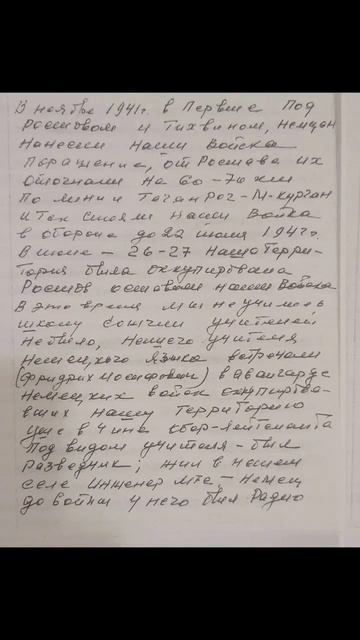 В ноябре 1941г. в Первые Под
Ростовом и Тихвином, немцам
Нанесли Наши Войска
Поражение, от Ростова их
Отогнали на 60-70 км
По линии Таганрог-М-Курган
И Так стояли Наши Войка
в обороне до 22 июля 194 г.
В июле - 26-27 Наша Терри-
Тория была оккупирована
Ростов оставили наши Войска
В это время мы не учились
школу сожгли учителей
Небыло, Нашего учителя
Немецкого Языка встречали
(Фридрих Иосифович) в авангарде
Немецких войск оккупирова-
вших Нашу Территорию
уже в чина обор-лейтенанта
Под видом учителя - был
Разведчик; жил в нашем
селе Инженер мтс - немец
до войны у него был Радио